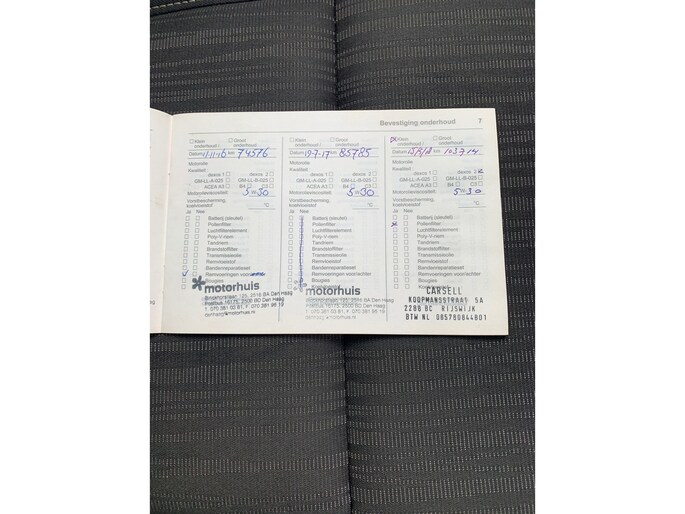 Bevestiging onderhoud 7
Klein onderhoud / Groot onderhoud
Datum 11-11-16 km 74576
Motorolie
Kwaliteit: dexos 1 dexos 2
GM-LL-A-025 GM-LL-B-025
ACEA A3 B4 C3
Motorolieviscositeit: 5 W 30
Vorstbescherming: koelvloeistof °C
Ja Nee
Batterij (sleutel)
Pollenfilter
Luchtfilterelement
Poly-V-riem
Tandriem
Brandstoffilter
Transmissieolie
Remvloeistof
Bandenreparatieset
Remvoeringen voor/achter
Bougies
motorhuis
Binckhorstlaan 125, 2516 BA Den Haag
Postbus 16175, 2500 BD Den Haag
Klein onderhoud / Groot onderhoud
Datum 19-7-17 km 85785
Motorolie
Kwaliteit: dexos 1 dexos 2
GM-LL-A-025 GM-LL-B-025
ACEA A3 B4 C3
Motorolieviscositeit: 5 W 30
Vorstbescherming: koelvloeistof °C
Ja Nee
Batterij (sleutel)
Pollenfilter
Luchtfilterelement
Poly-V-riem
Tandriem
Brandstoffilter
Transmissieolie
Remvloeistof
Bandenreparatieset
Remvoeringen voor/achter
Bougies
motorhuis
Binckhorstlaan 125, 2516 BA Den Haag
Postbus 16175, 2500 BD Den Haag
Klein onderhoud / Groot onderhoud
Datum km 103714
Motorolie
Kwaliteit: dexos 1 dexos 2
GM-LL-A-025 GM-LL-B-025
ACEA A3 B4 C3
Motorolieviscositeit: 5 W 30
Vorstbescherming: koelvloeistof °C
Ja Nee
Batterij (sleutel)
Pollenfilter
Luchtfilterelement
Poly-V-riem
Tandriem
Brandstoffilter
Transmissieolie
Remvloeistof
Bandenreparatieset
Remvoeringen voor/achter
Bougies
CARSELL
KOOPMANSSTRAAT 5A
2288 BC RIJSWIJK
BTW NL 085780844B01